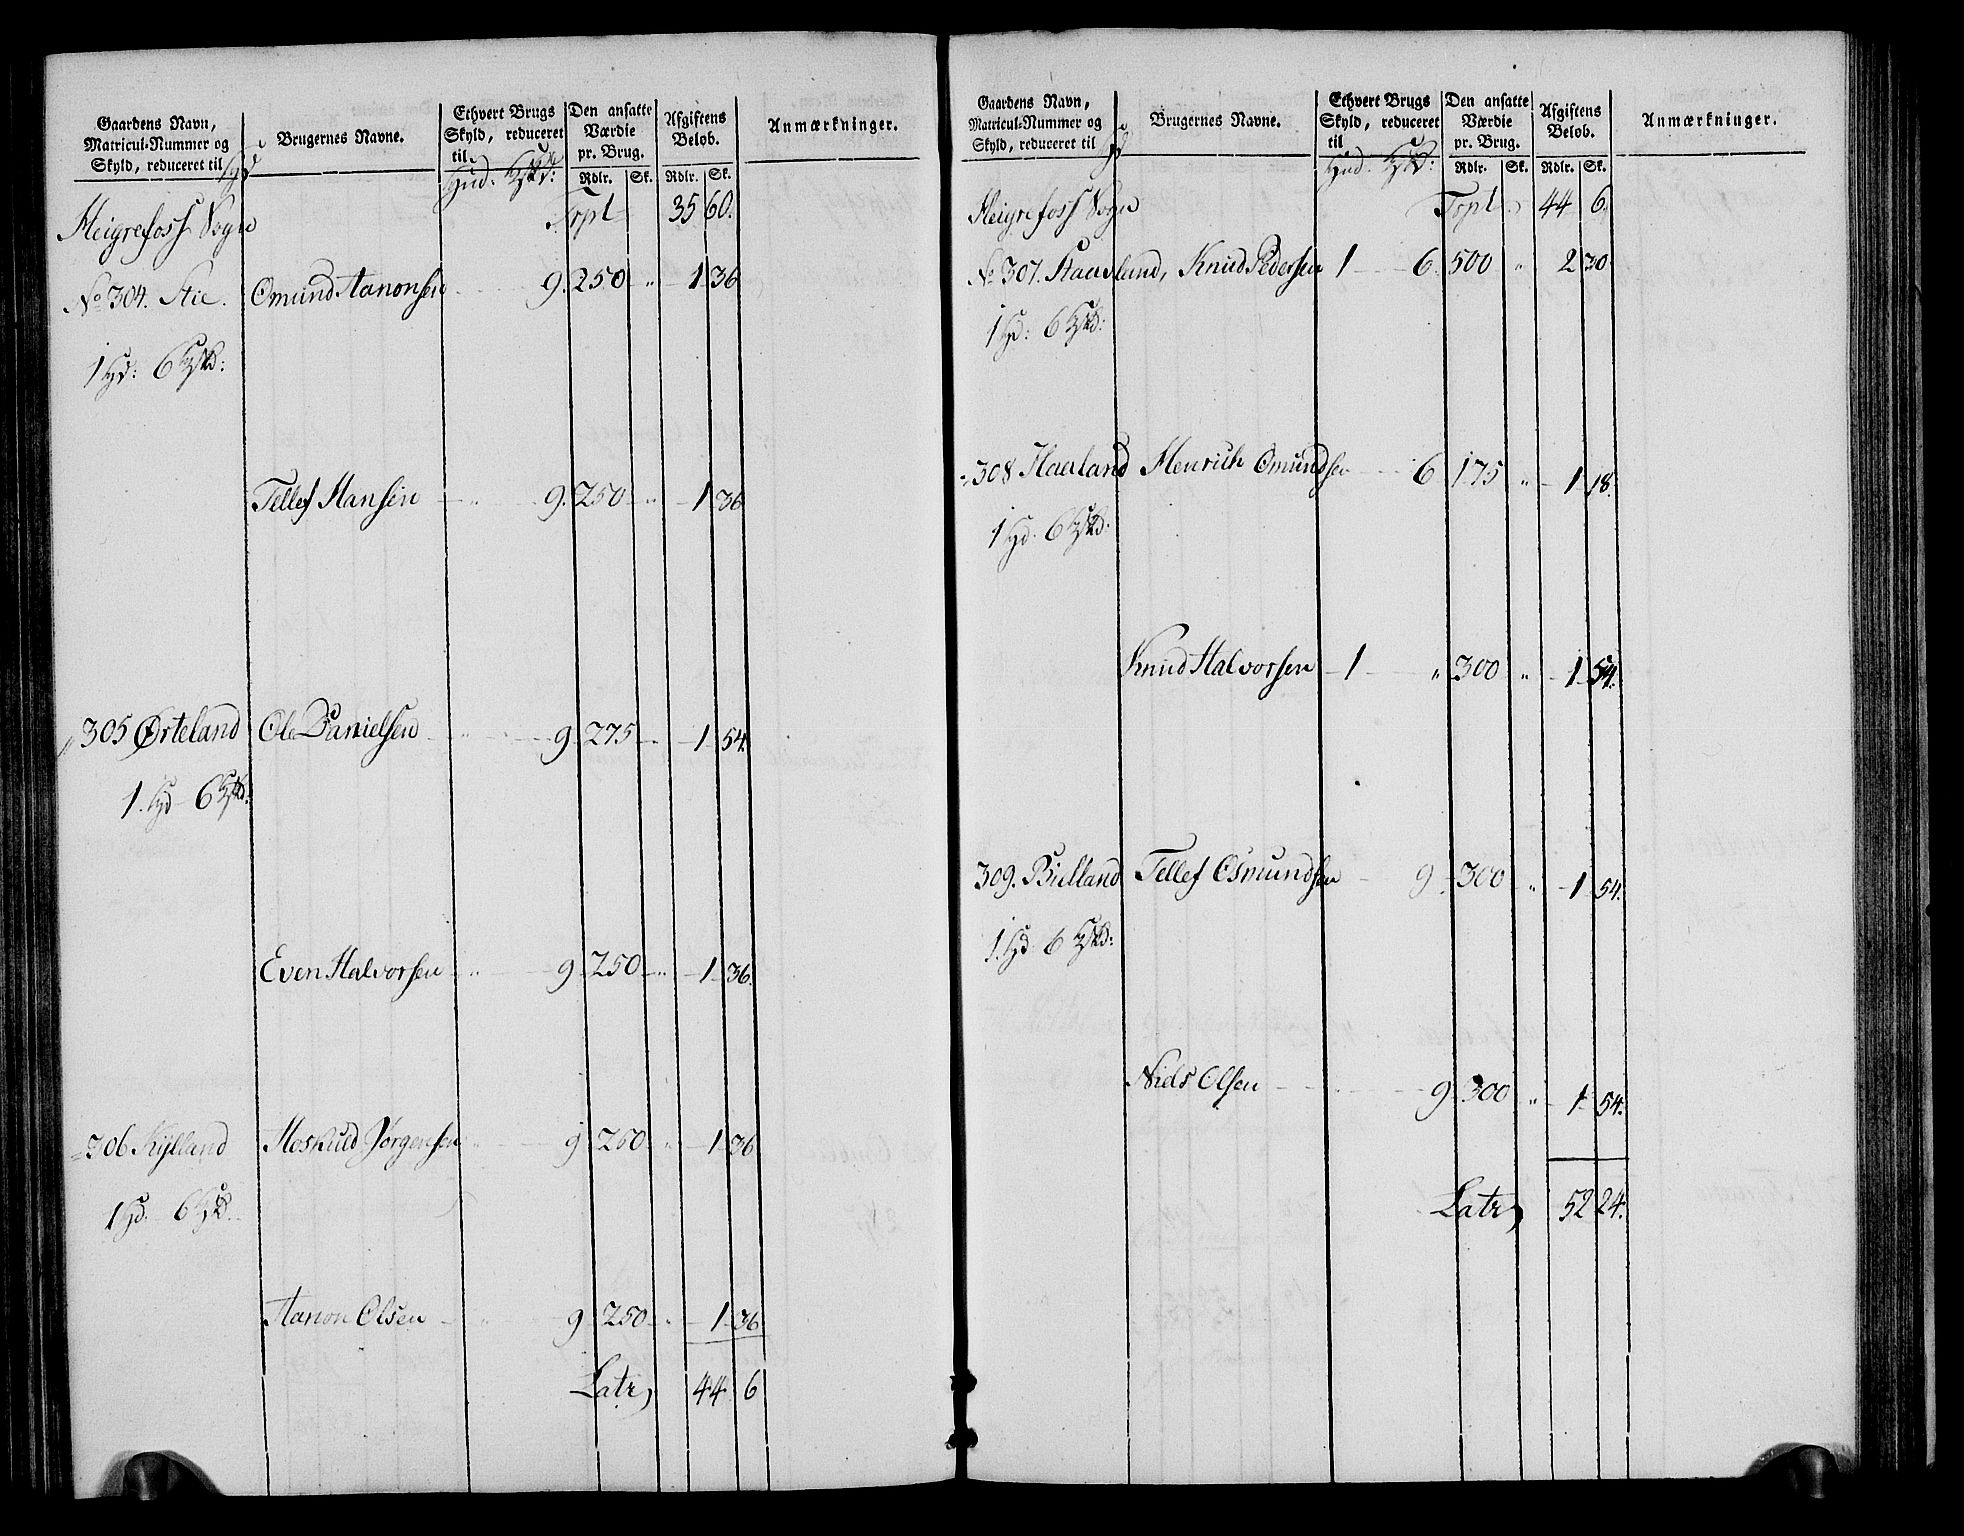 Gaardens Navn,
Matricul-Nummer og
Skyld, reduceret til
Brugernes Navne.
Ethvert Brugs
Skyld, reduceret
til
Hud.
Den ansatte
Værdie
pr. Brug.
Rdlr. Sk.
Afgiftens
Beløb.
Rdlr. Sk.
Anmærkninger.
Heigrefoss Sogn Trpt 35 60.
No 304. Stie. Omund Aanonsen 9. 250 " 1 36
1 Hd: 6
Tellef Hansen " 9. 250 " 1 36
" 305 Ørteland Ole Danielsen " 9 275 " 1 54.
1. Hd 6
Even Halvorsen " 9 250 " 1 36.
= 306 Kylland Hoskuld Jörgensen " 9 250 " 1 36
1 Hd. 6
Aanon Olsen " 9 250 " 1 36.
Latr 44 6
Gaardens Navn,
Matricul-Nummer og
Skyld, reduceret til
Brugernes Navne.
Ethvert Brugs
Skyld, reduceret
til
Hud.
Den ansatte
Værdie
pr. Brug.
Rdlr. Sk.
Afgiftens
Beløb.
Rdlr. Sk.
Anmærkninger.
Heigrefoss Sogn Trpt 44 6
No 307. Knud Pedersen 1 6. 500 " 2 30
1 Hd: 6
= 308 Haaland Henrich Omundsen 6 175 " 1 18.
1 Hd. 6
Knud Halvorsen 1 " 300 " 1 54.
309. Bielland Tellef Osmundsen 9 300 " 1 54.
1. Hd 6
Niels Olsen 9 300 " 1 54.
Latr 52 24.